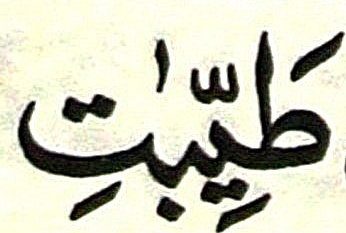 طَيِّبٰتِ